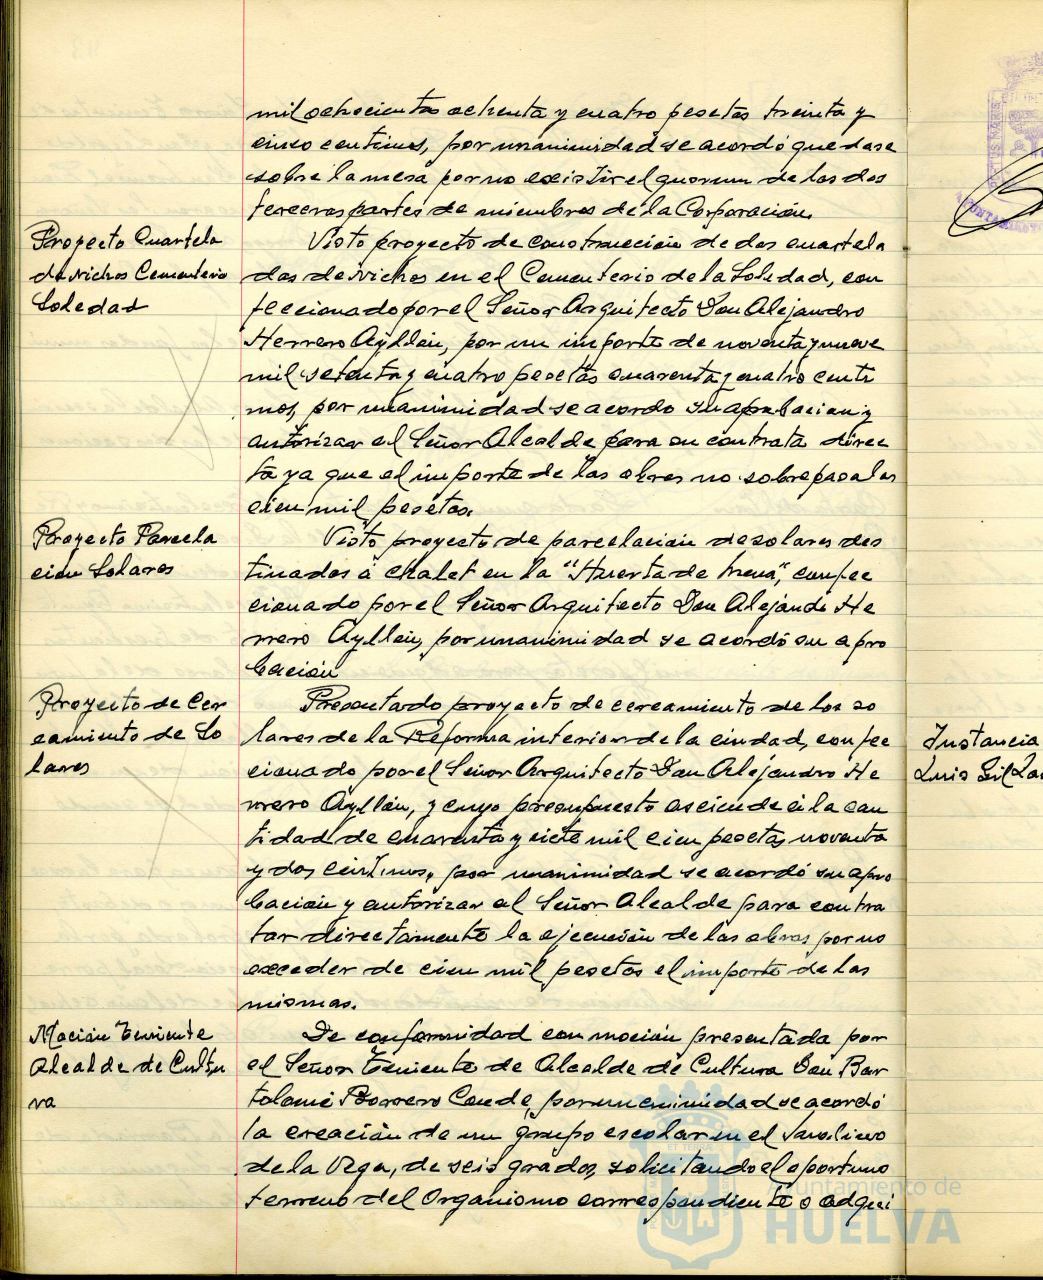 mil ochocientas ochenta y cuatro pesetas treinta y
cinco centimos, por unanimidad se acordó quedase
sobre la mesa por no existir el quorum de las dos
terceras partes de miembros de la Corporación.
Proyecto Cuartela
da nichos Cementerio
Soledad
Visto proyecto de construcción de dos cuartela
das de Nichos en el Cementerio de la Soledad, con
feccionado por el Señor Arquitecto Don Alejandro
Herrero Ayllón, por un importe de noventa y nueve
mil setenta y cuatro pesetas cuarenta y cuatro centi
mos, por unanimidad se acordo su aprobacion y
autorizar al Señor Alcalde para su contrata direc
ta ya que el importe de las obras no sobrepasa las
cien mil pesetas.
Proyecto Parcela
cion Solares
Visto proyecto de parcelación de solares des
tinados a chalet en la "Huerta de Mena", confec
cionado por el Señor Arquitecto Don Alejandro He
rrero Ayllón, por unanimidad se acordó su apro
bación
Proyecto de Cer
camiento de So
lares
Presentado proyecto de cercamiento de los so
lares de la Reforma interior de la ciudad, confec
cionado por el Señor Arquitecto Don Alejandro He
rrero Ayllón, y cuyo presupuesto asciende a la can
tidad de cuarenta y siete mil cien pesetas noventa
y dos centimos, por unanimidad se acordó su apro
bación y autorizar al Señor Alcalde para contra
tar directamente la ejecución de las obras por no
exceder de cien mil pesetas el importe de las
mismas.
Moción Teniente
Alcalde de Cultu
ra
De conformidad con moción presentada por
el Señor Teniente de Alcalde de Cultura Don Bar
tolomé Borrero Conde, por unanimidad se acordó
la creación de un grupo escolar en el
de la Vega, de seis grados, solicitando el oportuno
terreno del Organismo correspondiente o adqui
Instancia
Luis Gil
Ayuntamiento de
HUELVA